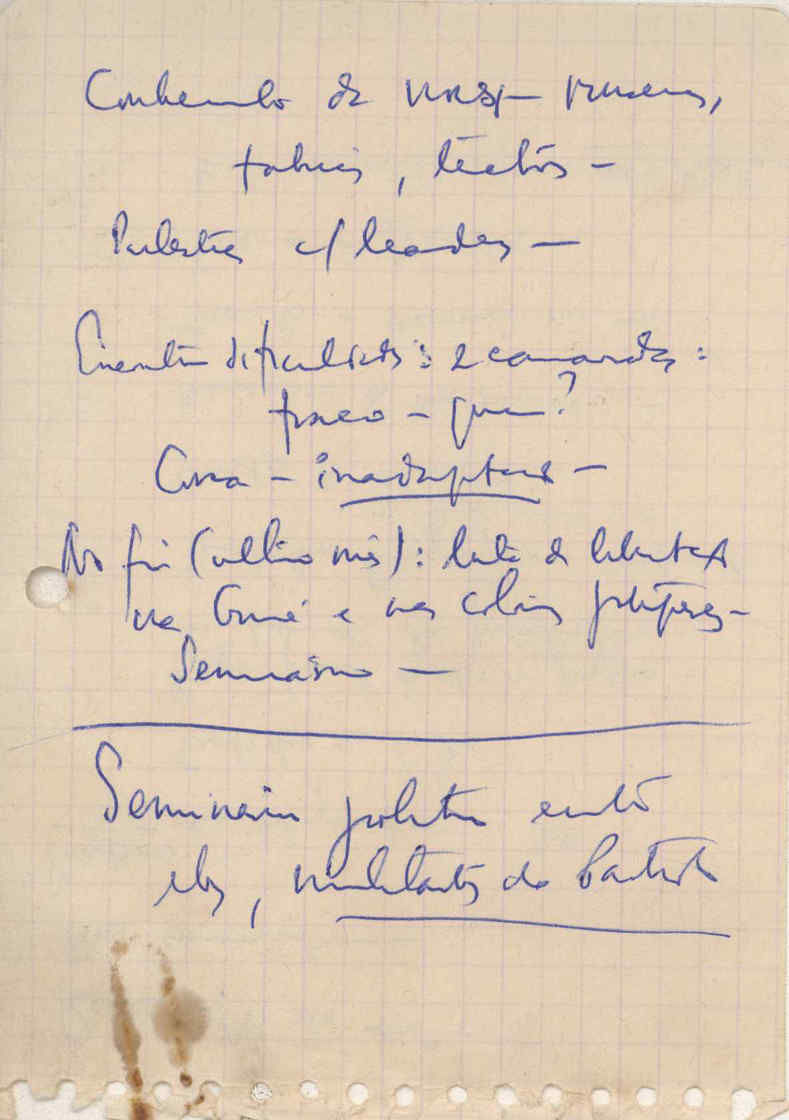 Conhecimento da URSS – museus,
fabricas, teatros –
Palestras c/ leaders –
Encontrou dificuldades: 2 camaradas:
fraco – quem?
Cura – inadaptado –
No fim (ultimo mês): luta de libertação
na Guiné e nas colonias portuguesas –
Seminário –
Seminario politico entre
eles, militantes do Partido